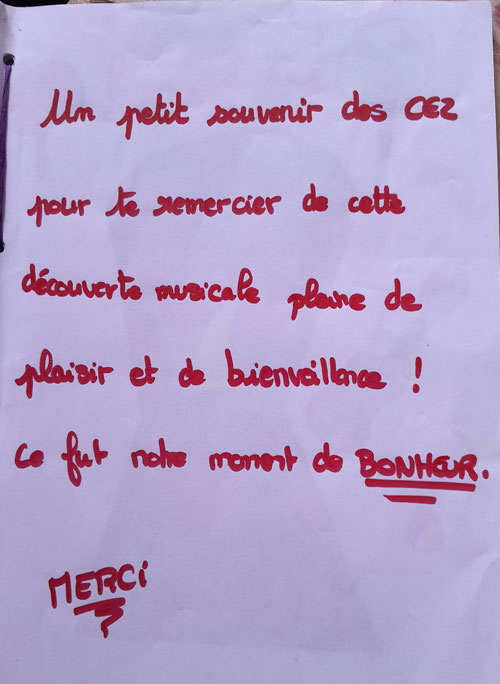 Un petit souvenir des CE2
pour te remercier de cette
découverte musicale pleine de
plaisir et de bienveillance !
Ce fut notre moment de BONHEUR.
MERCi